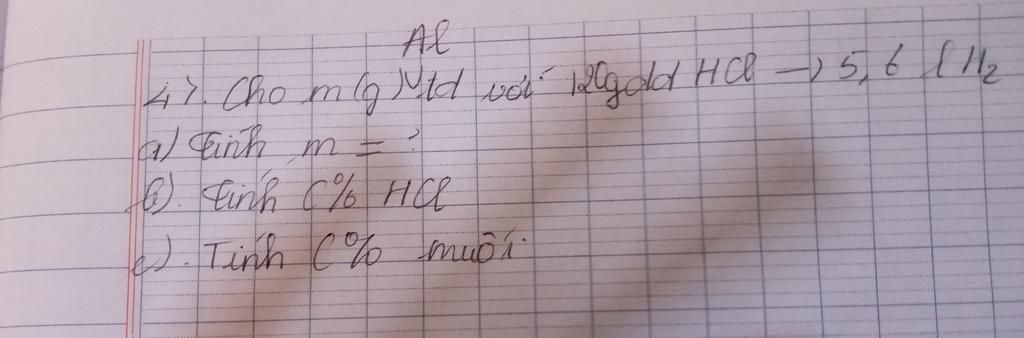 Al
4). Cho m(g) td với 120g dd HCl → 5,6 l H₂
a) Tính m = ?
b). Tính C% HCl
c). Tính C% muối.